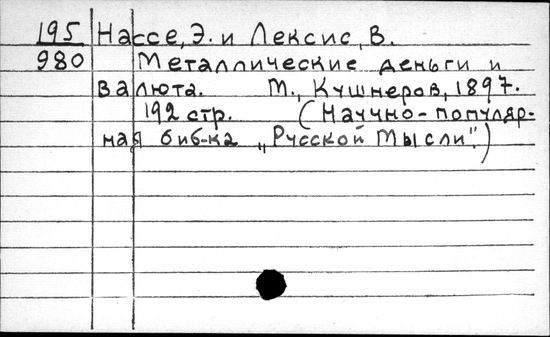 195 Нассе, Э. и Лексис, В.
980 Металлические деньги и
валюта. М., Кушнеров, 1897.
192 стр. (Научно-популяр-
ная биб-ка „Русской Мысли".)